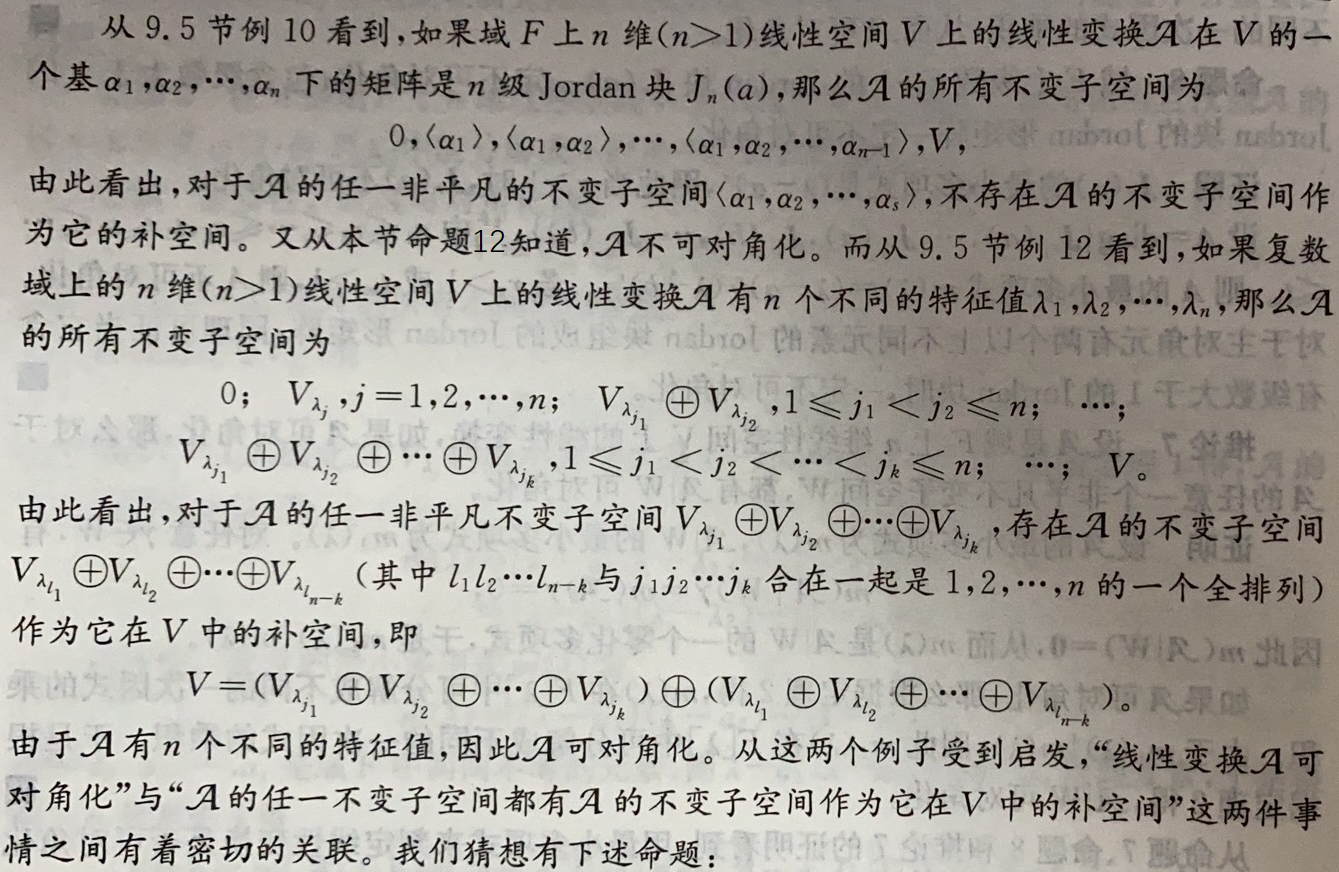 从 9.5 节例 10 看到,如果域 F 上 n 维(n>1)线性空间 V 上的线性变换𝒜 在 V 的一
个基 α₁,α₂,⋯,αₙ 下的矩阵是 n 级 Jordan 块 Jₙ(a),那么𝒜 的所有不变子空间为
0,⟨α₁⟩,⟨α₁,α₂⟩,⋯,⟨α₁,α₂,⋯,αₙ₋₁⟩,V,
由此看出,对于𝒜 的任一非平凡的不变子空间⟨α₁,α₂,⋯,αₛ⟩,不存在𝒜 的不变子空间作
为它的补空间。又从本节命题12知道,𝒜 不可对角化。而从 9.5 节例 12 看到,如果复数
域上的 n 维(n>1)线性空间 V 上的线性变换𝒜 有 n 个不同的特征值 λ₁,λ₂,⋯,λₙ,那么𝒜
的所有不变子空间为
0; V_{λ_j},j=1,2,⋯,n; V_{λ_{j₁}}⊕V_{λ_{j₂}},1≤j₁<j₂≤n; ⋯;
V_{λ_{j₁}}⊕V_{λ_{j₂}}⊕⋯⊕V_{λ_{j_k}},1≤j₁<j₂<⋯<j_k≤n; ⋯; V。
由此看出,对于𝒜 的任一非平凡不变子空间 V_{λ_{j₁}}⊕V_{λ_{j₂}}⊕⋯⊕V_{λ_{j_k}},存在𝒜 的不变子空间
V_{λ_{l₁}}⊕V_{λ_{l₂}}⊕⋯⊕V_{λ_{l_{n-k}}}(其中 l₁l₂⋯l_{n-k}与 j₁j₂⋯j_k 合在一起是 1,2,⋯,n 的一个全排列)
作为它在 V 中的补空间,即
V=(V_{λ_{j₁}}⊕V_{λ_{j₂}}⊕⋯⊕V_{λ_{j_k}})⊕(V_{λ_{l₁}}⊕V_{λ_{l₂}}⊕⋯⊕V_{λ_{l_{n-k}}})。
由于𝒜 有 n 个不同的特征值,因此𝒜 可对角化。从这两个例子受到启发,“线性变换𝒜 可
对角化”与“𝒜 的任一不变子空间都有𝒜 的不变子空间作为它在 V 中的补空间”这两件事
情之间有着密切的关联。我们猜想有下述命题: